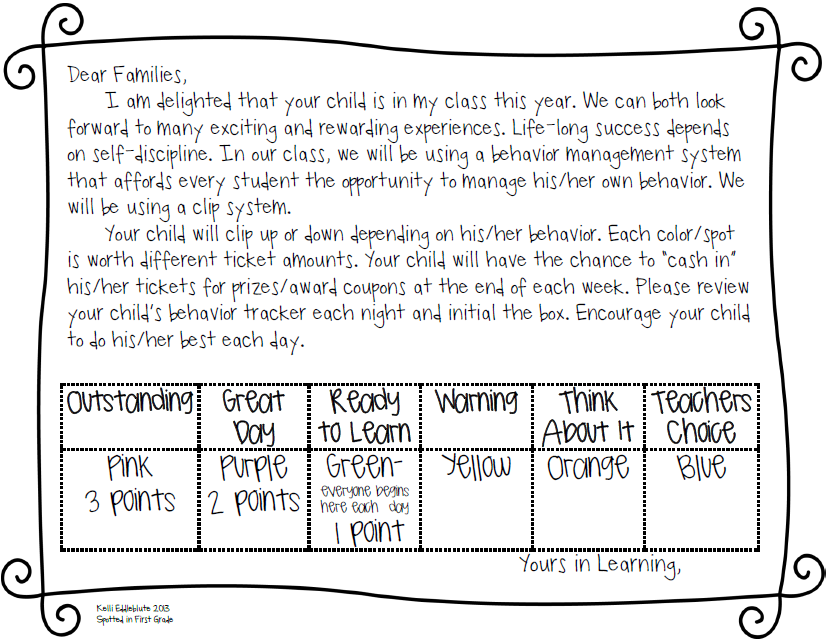 Dear Families,
I am delighted that your child is in my class this year. We can both look
forward to many exciting and rewarding experiences. Life-long success depends
on self-discipline. In our class, we will be using a behavior management system
that affords every student the opportunity to manage his/her own behavior. We
will be using a clip system.
Your child will clip up or down depending on his/her behavior. Each color/spot
is worth different ticket amounts. Your child will have the chance to "cash in"
his/her tickets for prizes/award coupons at the end of each week. Please review
your child's behavior tracker each night and initial the box. Encourage your child
to do his/her best each day.
Outstanding
Great
Day
Ready
to Learn
Warning
Think
About It
Teachers
Choice
Pink
3 points
Purple
2 points
Green-
everyone begins
here each day
1 point
Yellow
Orange
Blue
Yours in Learning,
Kelli Eddleblute 2013
Spotted in First Grade